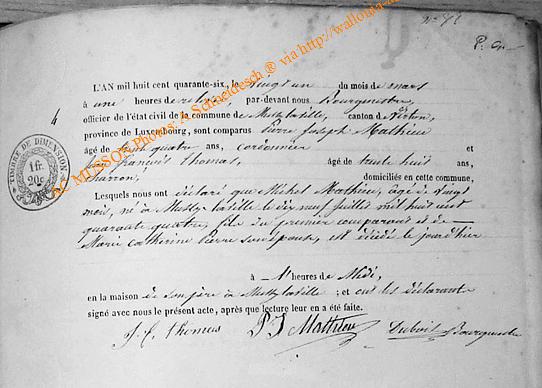 N° 71
P. Or
L'AN mil huit cent quarante-six, le vingt un du mois de mars
à une heures de relevée par-devant nous Bourgmestre,
officier de l'état civil de la commune de Mussy la ville, canton de Virton,
province de Luxembourg, sont comparus Pierre Joseph Mathieu
4
âgé de trente quatre ans, cordonnier et
Jean François Thomas, âgé de trente huit ans,
Charron, domiciliés en cette commune,
Lesquels nous ont déclaré que Michel Mathieu, âgé de vingt
mois, né à Mussy la ville le dix neuf juillet mil huit cent
quarante quatre, fils du premier comparant et de
Marie Catherine Pierre son épouse, est décédé le jour d'hier
à heures de Midi,
en la maison de son père à Mussy la ville ; et ont les déclarants
signé avec nous le présent acte, après que lecture leur en a été faite.
J. F. Thomas P J Mathieu Dubois Bourgmestre
TIMBRE DE DIMENSION
1 fr.
20c.
AC MUSSON Photos: A. Schneidesch ® via http://wallonia